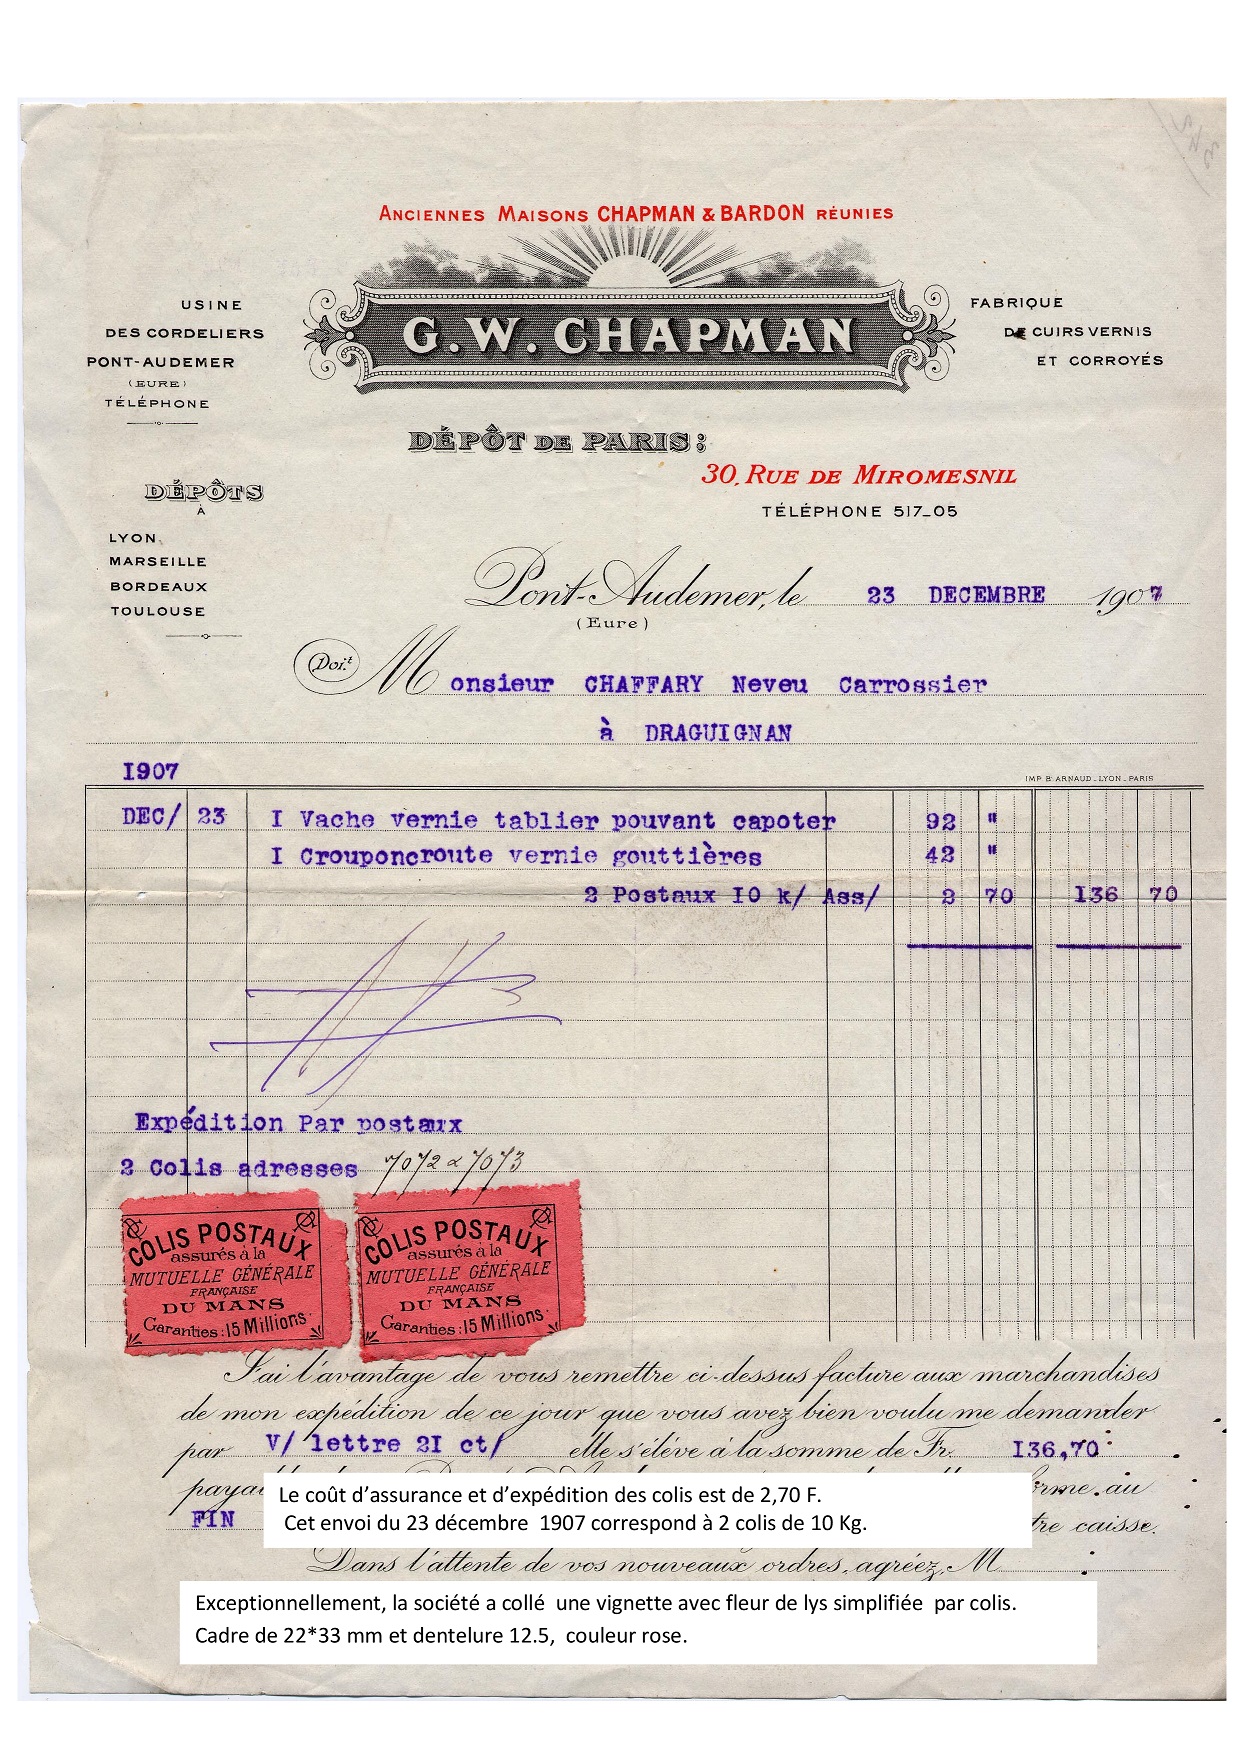 ANCIENNES MAISONS CHAPMAN & BARDON RÉUNIES
G.W. CHAPMAN
USINE
DES CORDELIERS
PONT-AUDEMER
(EURE)
TÉLÉPHONE
FABRIQUE
DE CUIRS VERNIS
ET CORROYÉS
DÉPÔT DE PARIS:
30, RUE DE MIROMESNIL
TÉLÉPHONE 517_05
DÉPÔTS
À
LYON
MARSEILLE
BORDEAUX
TOULOUSE
Pont-Audemer, le 23 DECEMBRE 1907
(Eure)
Doit Monsieur CHAFFARY Neveu Carrossier
à DRAGUIGNAN
I907
IMP B. ARNAUD_LYON_PARIS
DEC/ 23 I Vache vernie tablier pouvant capoter 92 "
I Crouponcroute vernie gouttières 42 "
2 Postaux I0 k/ Ass/ 2 70 I36 70
Expédition Par postaux
2 Colis adresses 7072 & 7073
COLIS POSTAUX
assurés à la
MUTUELLE GÉNÉRALE
FRANÇAISE
DU MANS
Garanties: 15 Millions
COLIS POSTAUX
assurés à la
MUTUELLE GÉNÉRALE
FRANÇAISE
DU MANS
Garanties: 15 Millions
J'ai l'avantage de vous remettre ci-dessus facture aux marchandises
de mon expédition de ce jour que vous avez bien voulu me demander
par V/ lettre 2I ct/ elle s'élève à la somme de Fr. I36,70
au
FIN caisse.
Le coût d'assurance et d'expédition des colis est de 2,70 F.
Cet envoi du 23 décembre 1907 correspond à 2 colis de 10 Kg.
Dans l'attente de vos nouveaux ordres, agréez, M
Exceptionnellement, la société a collé une vignette avec fleur de lys simplifiée par colis.
Cadre de 22*33 mm et dentelure 12.5, couleur rose.